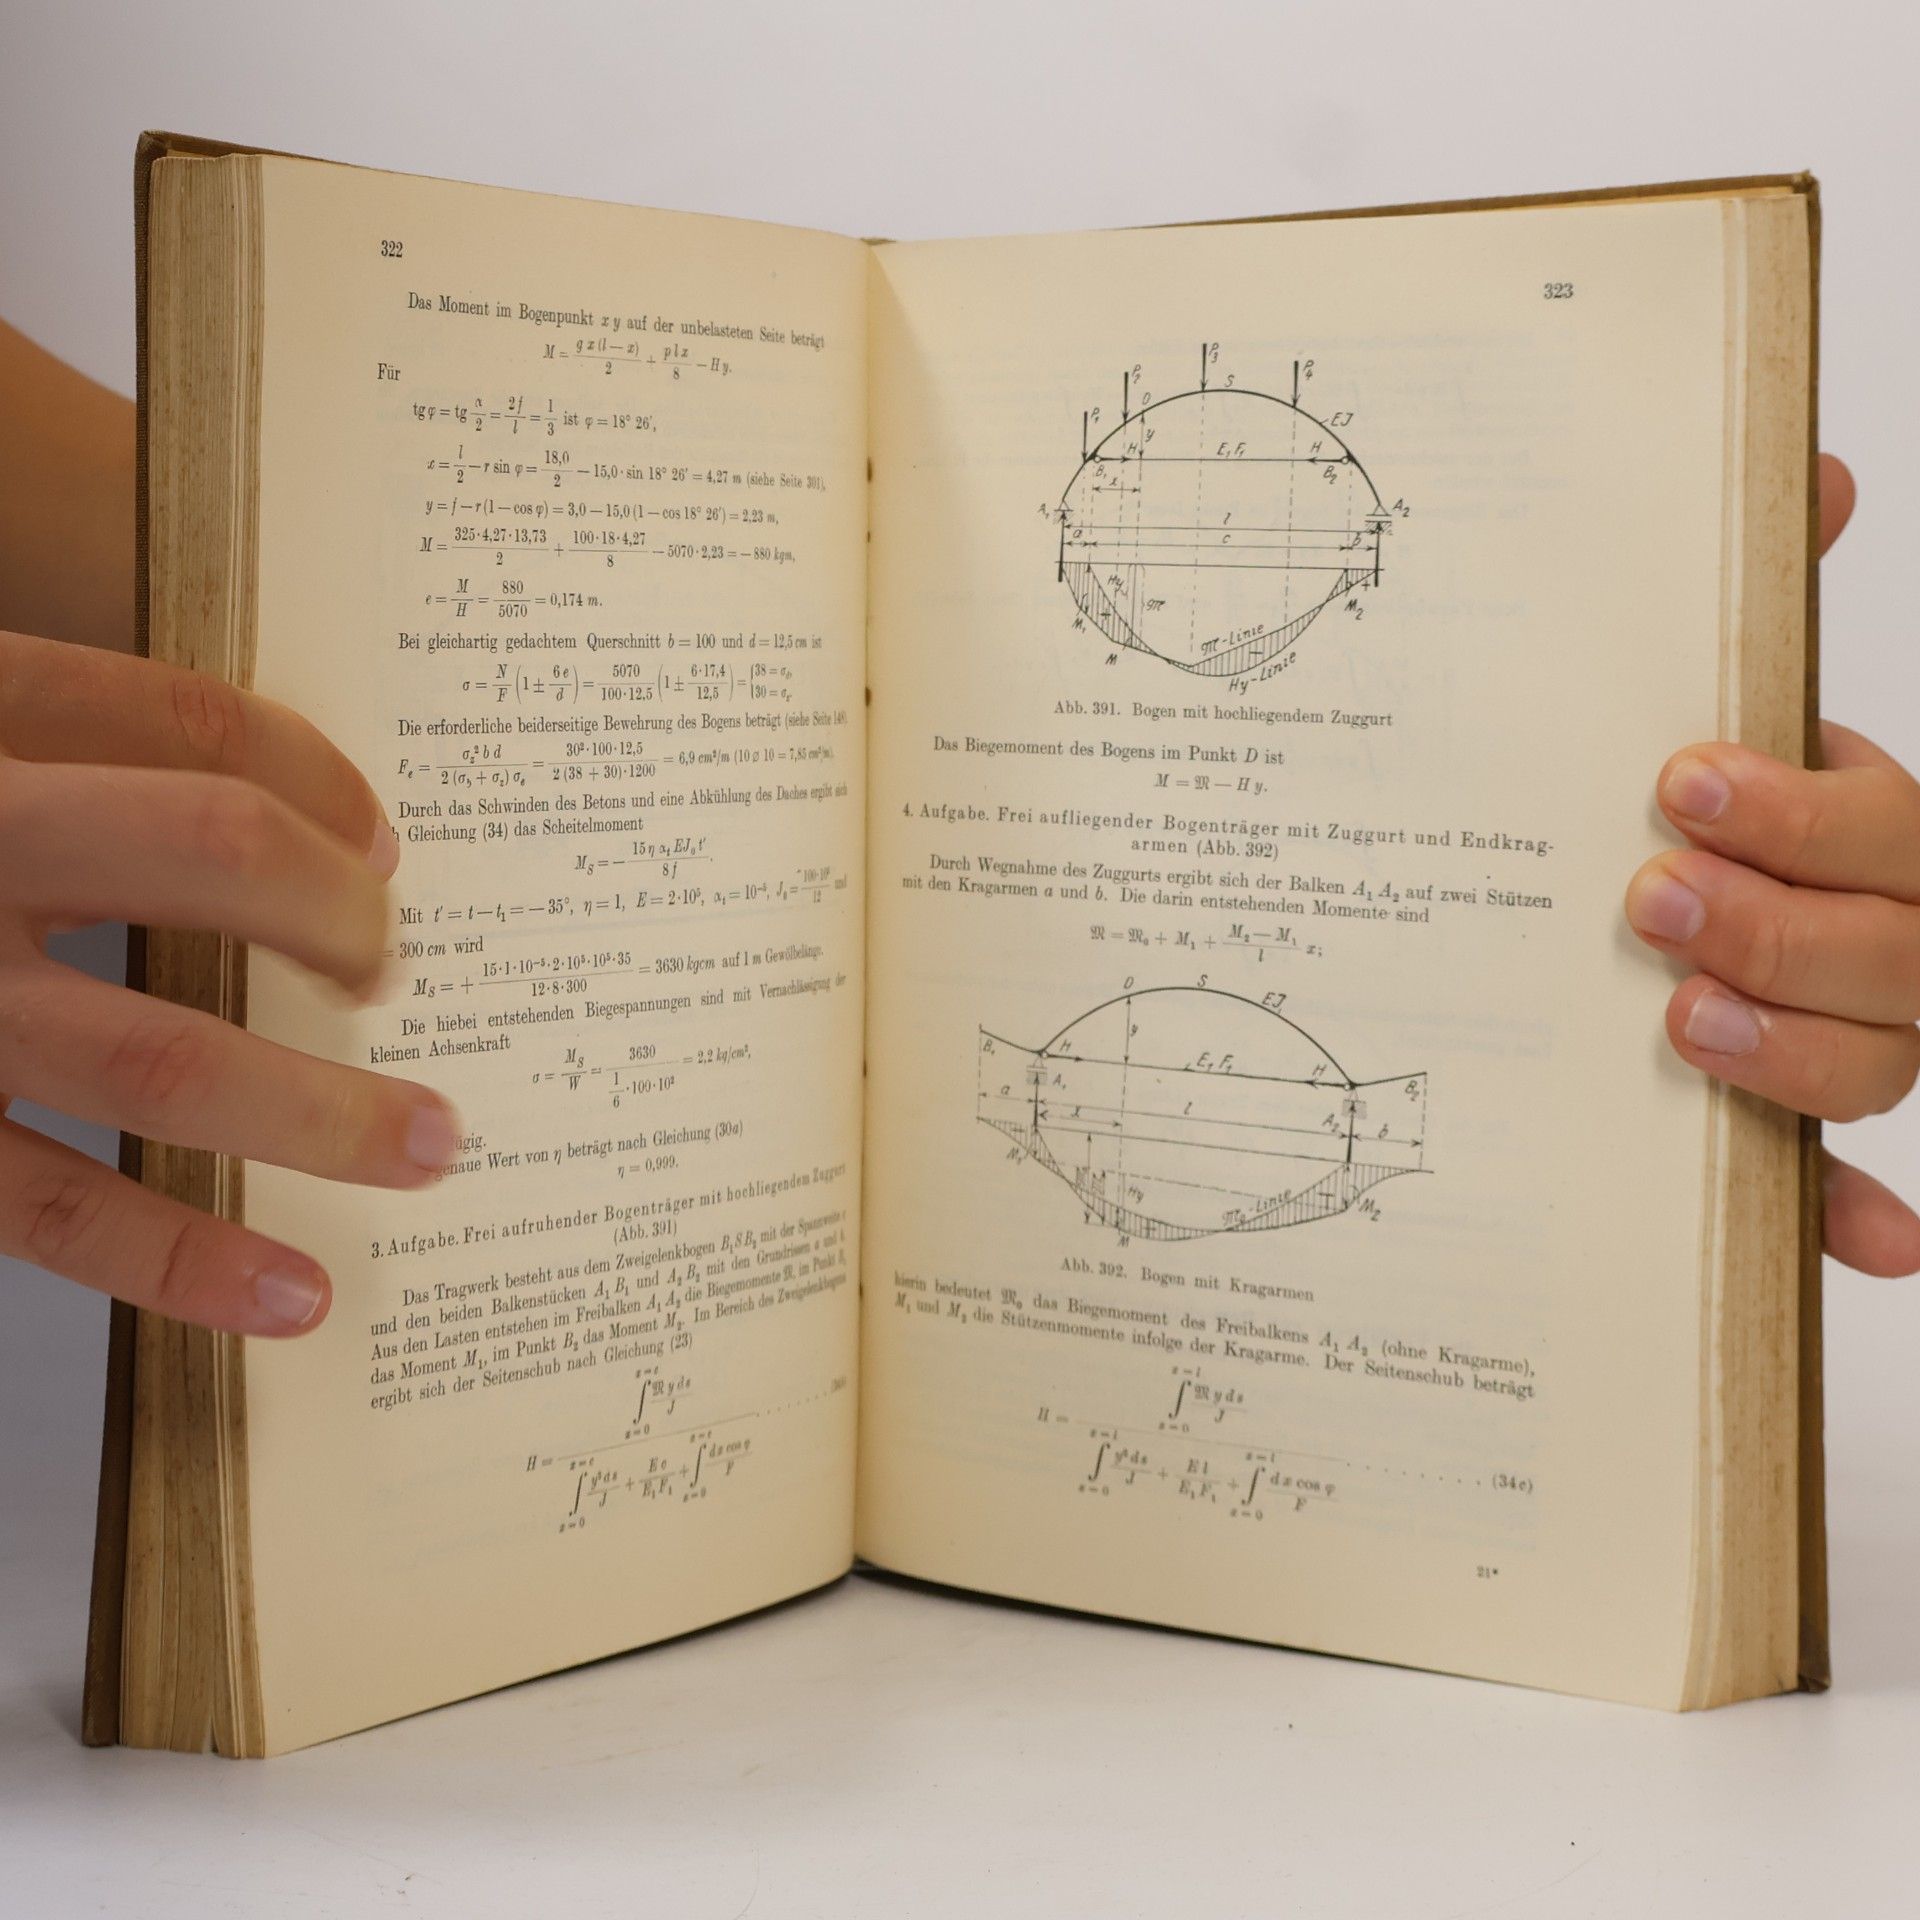 322
Das Moment im Bogenpunkt x y auf der unbelasteten Seite beträgt
M = g x (l − x)/2 + p l x/8 − H y.
Für
tg φ = tg α/2 = 2f/l = 1/3 ist φ = 18° 26′,
x = l/2 − r sin φ = 18,0/2 − 15,0 · sin 18° 26′ = 4,27 m (siehe Seite 301),
y = f − r (1 − cos φ) = 3,0 − 15,0 (1 − cos 18° 26′) = 2,23 m,
M = 325 · 4,27 · 13,73/2 + 100 · 18 · 4,27/8 − 5070 · 2,23 = − 880 kgm,
e = M/H = 880/5070 = 0,174 m.
Bei gleichartig gedachtem Querschnitt b = 100 und d = 12,5 cm ist
σ = N/F (1 ± 6 e/d) = 5070/(100 · 12,5) (1 ± 6 · 17,4/12,5) = {38 = σd, 30 = σz.
Die erforderliche beiderseitige Bewehrung des Bogens beträgt (siehe Seite 148)
Fe = σz² b d/(2 (σb + σz) σe) = 30² · 100 · 12,5/(2 (38 + 30) · 1200) = 6,9 cm²/m (10 ⌀ 10 = 7,85 cm²/m).
Durch das Schwinden des Betons und eine Abkühlung des Daches ergibt sich
h Gleichung (34) das Scheitelmoment
MS = − 15 η αt E J0 t′/(8 f).
Mit t′ = t − t1 = − 35°, η = 1, E = 2 · 10⁵, αt = 10⁻⁵, J0 = 100 · 10³/12 und
= 300 cm wird
MS = + 15 · 1 · 10⁻⁵ · 2 · 10⁵ · 10⁵ · 35/(12 · 8 · 300) = 3630 kgcm auf 1 m Gewölbelänge.
Die hiebei entstehenden Biegespannungen sind mit Vernachlässigung der
kleinen Achsenkraft
σ = MS/W = 3630/(1/6 · 100 · 10²) = 2,2 kg/cm²,
ügig.
genaue Wert von η beträgt nach Gleichung (30a)
η = 0,999.
3. Aufgabe. Frei aufruhender Bogenträger mit hochliegendem Zuggurt
(Abb. 391)
Das Tragwerk besteht aus dem Zweigelenkbogen B1 S B2 mit der Spannweite c
und den beiden Balkenstücken A1 B1 und A2 B2 mit den Grundrissen a und b.
Aus den Lasten entstehen im Freibalken A1 A2 die Biegemomente 𝔐, im Punkt B1
das Moment M1, im Punkt B2 das Moment M2. Im Bereich des Zweigelenkbogens
ergibt sich der Seitenschub nach Gleichung (23)
H = ∫ (x=0, x=c) 𝔐 y ds/J / (∫ (x=0, x=c) y² ds/J + E c/(E1 F1) + ∫ (x=0, x=c) dx cos φ/F)
323
P1 P2 P3 P4
D S EJ
y H E1 F1 H
B1 B2
x
A1 A2
l
a c b
Hy 𝔐 +
M1 M2
M 𝔐-Linie
Hy-Linie
Abb. 391. Bogen mit hochliegendem Zuggurt
Das Biegemoment des Bogens im Punkt D ist
M = 𝔐 − H y.
4. Aufgabe. Frei aufliegender Bogenträger mit Zuggurt und Endkrag-
armen (Abb. 392)
Durch Wegnahme des Zuggurts ergibt sich der Balken A1 A2 auf zwei Stützen
mit den Kragarmen a und b. Die darin entstehenden Momente sind
𝔐 = 𝔐0 + M1 + (M2 − M1)/l x;
D S EJ
y
B1 H E1 F1 H B2
A1 A2
a x l b
M1 Hy 𝔐0-Linie M2
M
Abb. 392. Bogen mit Kragarmen
hierin bedeutet 𝔐0 das Biegemoment des Freibalkens A1 A2 (ohne Kragarme),
M1 und M2 die Stützenmomente infolge der Kragarme. Der Seitenschub beträgt
H = ∫ (x=0, x=l) 𝔐 y ds/J / (∫ (x=0, x=l) y² ds/J + E l/(E1 F1) + ∫ (x=0, x=l) dx cos φ/F) . . . . . . . . (34c)
21*